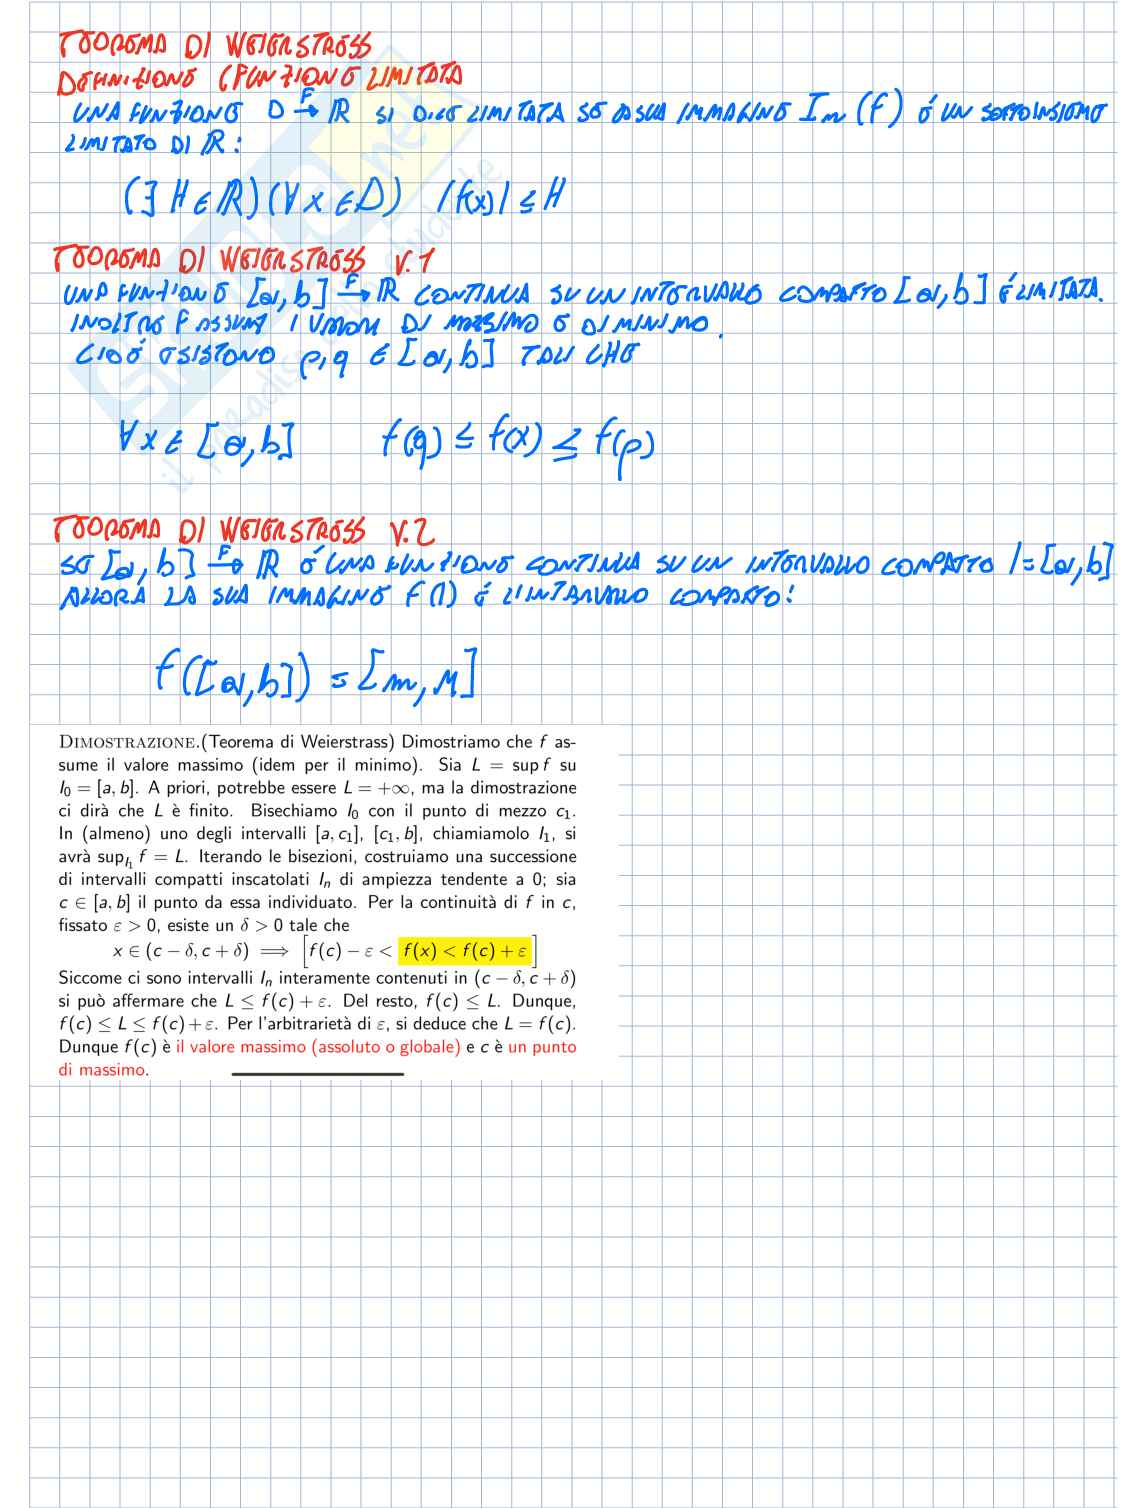 TEOREMA DI WEIERSTRESS
DEFINIZIONE (FUNZIONE LIMITATA
UNA FUNZIONE D →F ℝ SI DICE LIMITATA SE LA SUA IMMAGINE Im (f) É UN SOTTOINSIEME
LIMITATO DI ℝ:
(∃ H ∈ ℝ) (∀ x ∈ D) |f(x)| ≤ H
TEOREMA DI WEIERSTRESS V.1
UNA FUNZIONE [a, b] →F ℝ CONTINUA SU UN INTERVALLO COMPATTO [a, b] É LIMITATA.
INOLTRE F ASSUME I VALORI DI MASSIMO E DI MINIMO.
CIOÉ ESISTONO p, q ∈ [a, b] TALI CHE
∀ x ∈ [a, b] f(q) ≤ f(x) ≤ f(p)
TEOREMA DI WEIERSTRESS V.2
SE [a, b] →F ℝ É UNA FUNZIONE CONTINUA SU UN INTERVALLO COMPATTO I = [a, b]
ALLORA LA SUA IMMAGINE F (I) É L'INTERVALLO COMPATTO:
f([a, b]) = [m, M]
DIMOSTRAZIONE.(Teorema di Weierstrass) Dimostriamo che f as-
sume il valore massimo (idem per il minimo). Sia L = sup f su
I₀ = [a, b]. A priori, potrebbe essere L = +∞, ma la dimostrazione
ci dirà che L è finito. Bisechiamo I₀ con il punto di mezzo c₁.
In (almeno) uno degli intervalli [a, c₁], [c₁, b], chiamiamolo I₁, si
avrà sup_I₁ f = L. Iterando le bisezioni, costruiamo una successione
di intervalli compatti inscatolati Iₙ di ampiezza tendente a 0; sia
c ∈ [a, b] il punto da essa individuato. Per la continuità di f in c,
fissato ε > 0, esiste un δ > 0 tale che
x ∈ (c − δ, c + δ) ⟹ [f(c) − ε < f(x) < f(c) + ε]
Siccome ci sono intervalli Iₙ interamente contenuti in (c − δ, c + δ)
si può affermare che L ≤ f(c) + ε. Del resto, f(c) ≤ L. Dunque,
f(c) ≤ L ≤ f(c) + ε. Per l'arbitrarietà di ε, si deduce che L = f(c).
Dunque f(c) è il valore massimo (assoluto o globale) e c è un punto
di massimo.